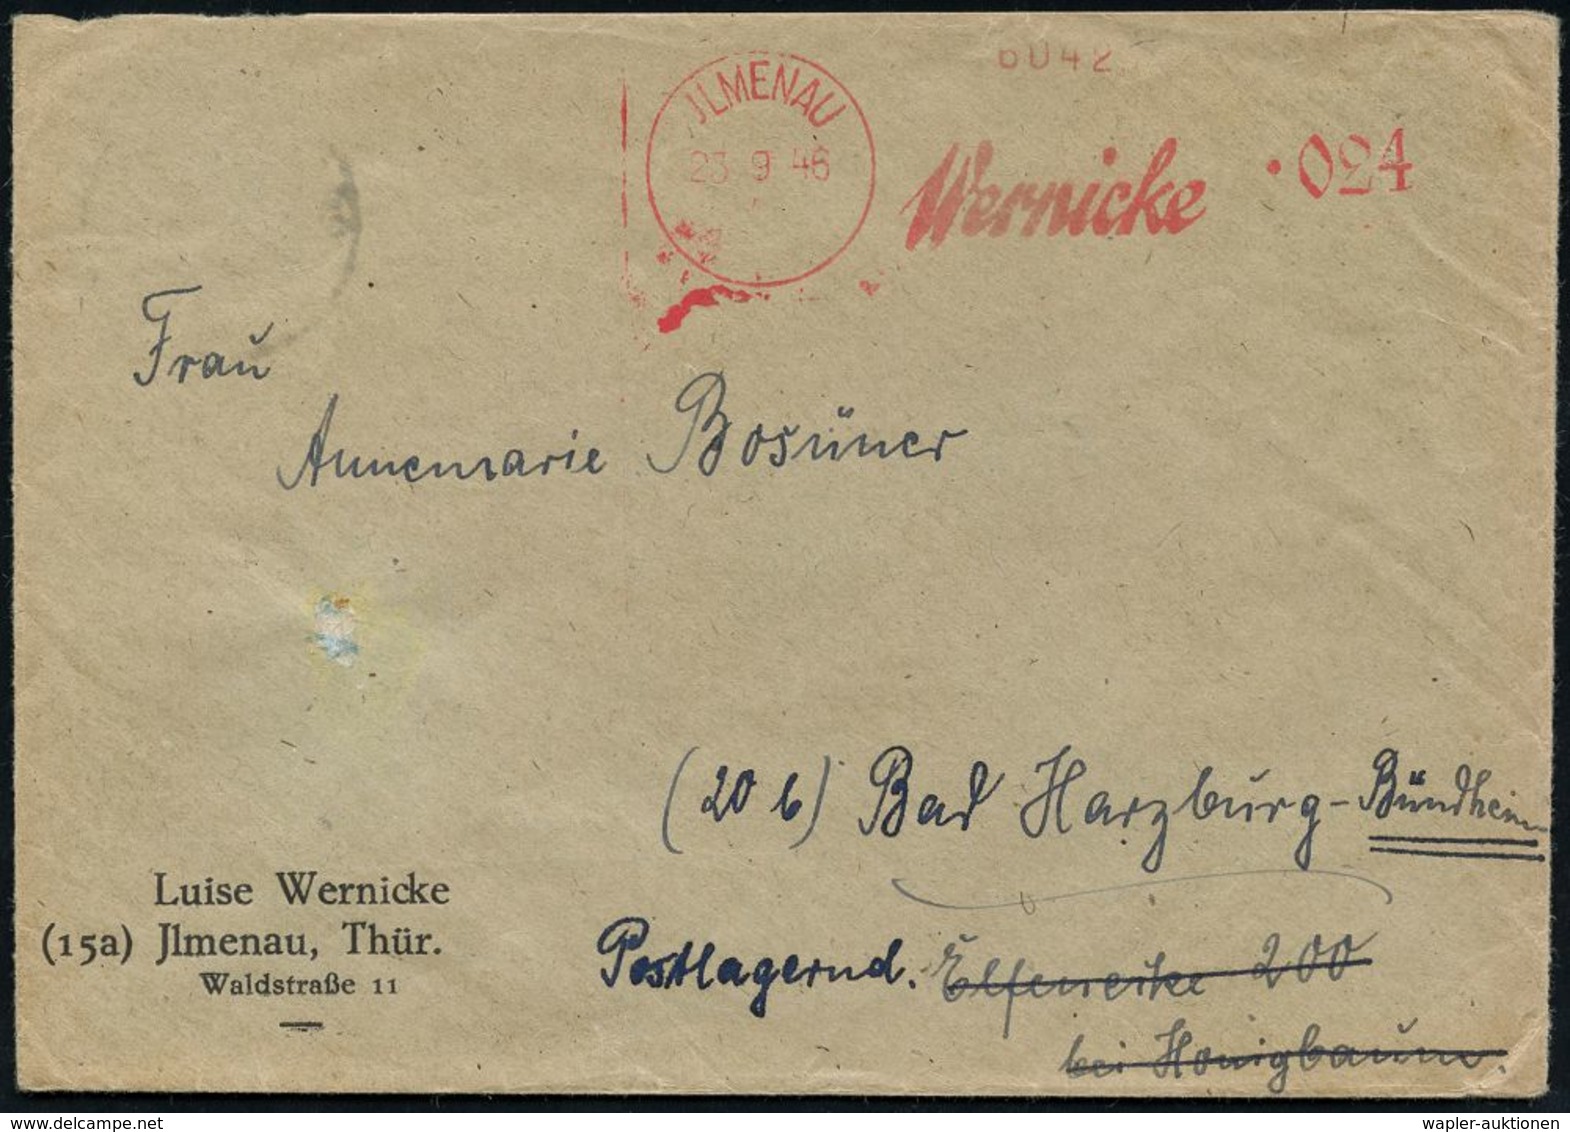 6042
JLMENAU
23 9 46
Wernicke
·024
Frau
Annemarie Bosüner
(20 b) Bad Harzburg-Bündheim
Luise Wernicke
(15a) Jlmenau, Thür.
Waldstraße 11
Postlagernd. 200
bei Honigbaum.
wapler-auktionen